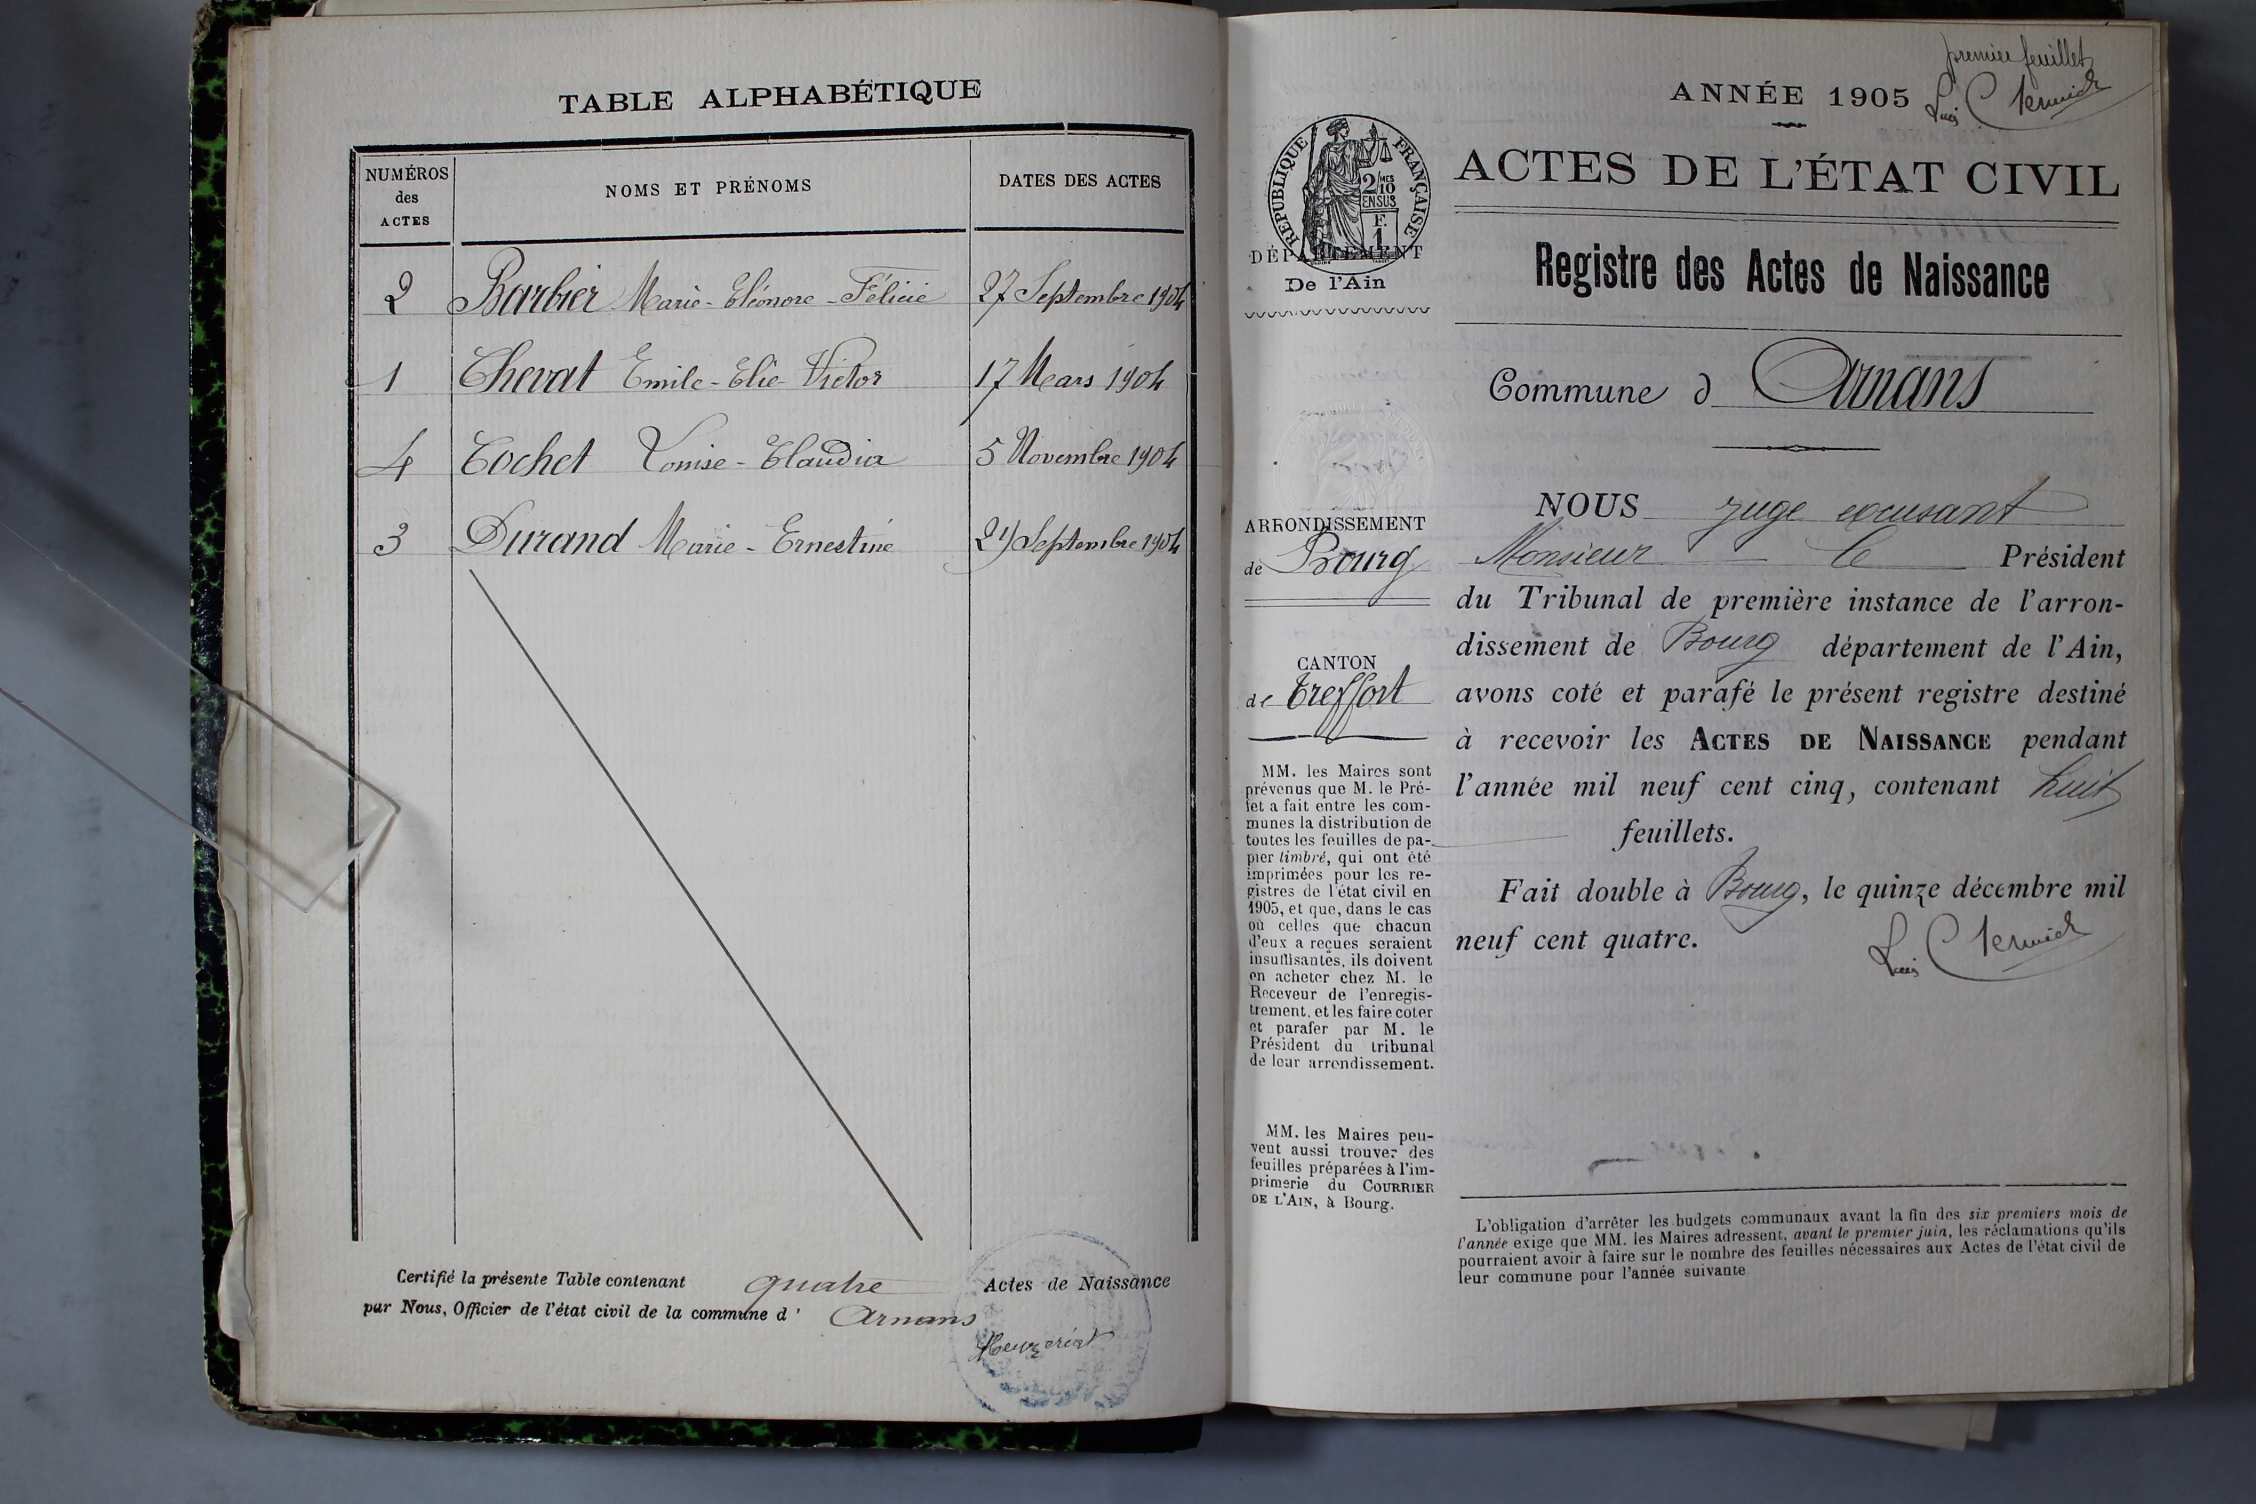 TABLE ALPHABÉTIQUE
NUMÉROS des ACTES
NOMS ET PRÉNOMS
DATES DES ACTES
2 Barbier Marie-Eléonore-Félicie 27 Septembre 1904
1 Chevat Emile-Elie-Victor 17 Mars 1904
4 Cochet Louise-Claudia 5 Novembre 1904
3 Durand Marie-Ernestine 29 Septembre 1904
Certifié la présente Table contenant quatre Actes de Naissance
par Nous, Officier de l'état civil de la commune d' Arnans
premier feuillet
ANNÉE 1905
RÉPUBLIQUE FRANÇAISE
2/10 MES
EN SUS
F. 1
DÉPARTEMENT
De l'Ain
ARRONDISSEMENT
de Bourg
CANTON
de Treffort
MM. les Maires sont
prévenus que M. le Pré-
fet a fait entre les com-
munes la distribution de
toutes les feuilles de pa-
pier timbré, qui ont été
imprimées pour les re-
gistres de l'état civil en
1905, et que, dans le cas
où celles que chacun
d'eux a reçues seraient
insuffisantes, ils doivent
en acheter chez M. le
Receveur de l'enregis-
trement, et les faire coter
et parafer par M. le
Président du tribunal
de leur arrondissement.
MM. les Maires peu-
vent aussi trouver des
feuilles préparées à l'im-
primerie du COURRIER
DE L'AIN, à Bourg.
ACTES DE L'ÉTAT CIVIL
Registre des Actes de Naissance
Commune d Arnans
NOUS juge excusant
Monsieur le Président
du Tribunal de première instance de l'arron-
dissement de Bourg département de l'Ain,
avons coté et parafé le présent registre destiné
à recevoir les ACTES DE NAISSANCE pendant
l'année mil neuf cent cinq, contenant huit
feuillets.
Fait double à Bourg, le quinze décembre mil
neuf cent quatre.
L'obligation d'arrêter les budgets communaux avant la fin des six premiers mois de
l'année exige que MM. les Maires adressent, avant le premier juin, les réclamations qu'ils
pourraient avoir à faire sur le nombre des feuilles nécessaires aux Actes de l'état civil de
leur commune pour l'année suivante